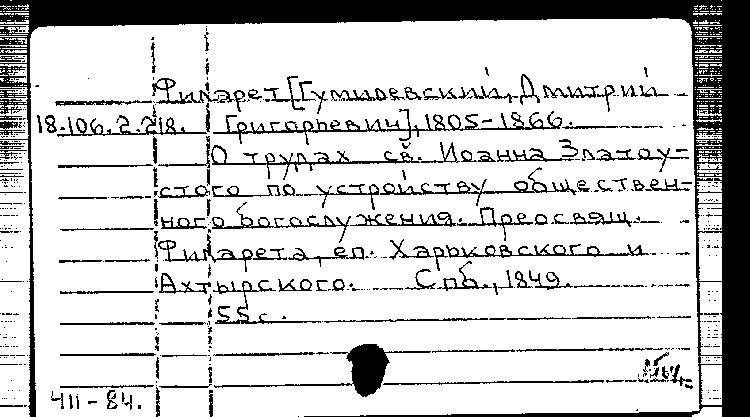 Филарет [Гумилевский, Дмитрий
18.106.2.218. Григорьевич], 1805-1866.
О трудах св. Иоанна Златоу-
стого по устройству обществен-
ного богослужения. Преосвящ.
Филарета, еп. Харьковского и
Ахтырского. Спб., 1849.
55 с.
411-84.